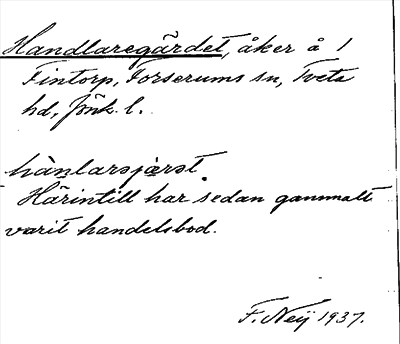 Handlaregärdet, åker å 1
Fintorp, Forserums sn, Tveta
hd, Jönk. l.
hànlarəjæ̀rət.
Härintill har sedan gammalt
varit handelsbod.
F. Neij 1937.